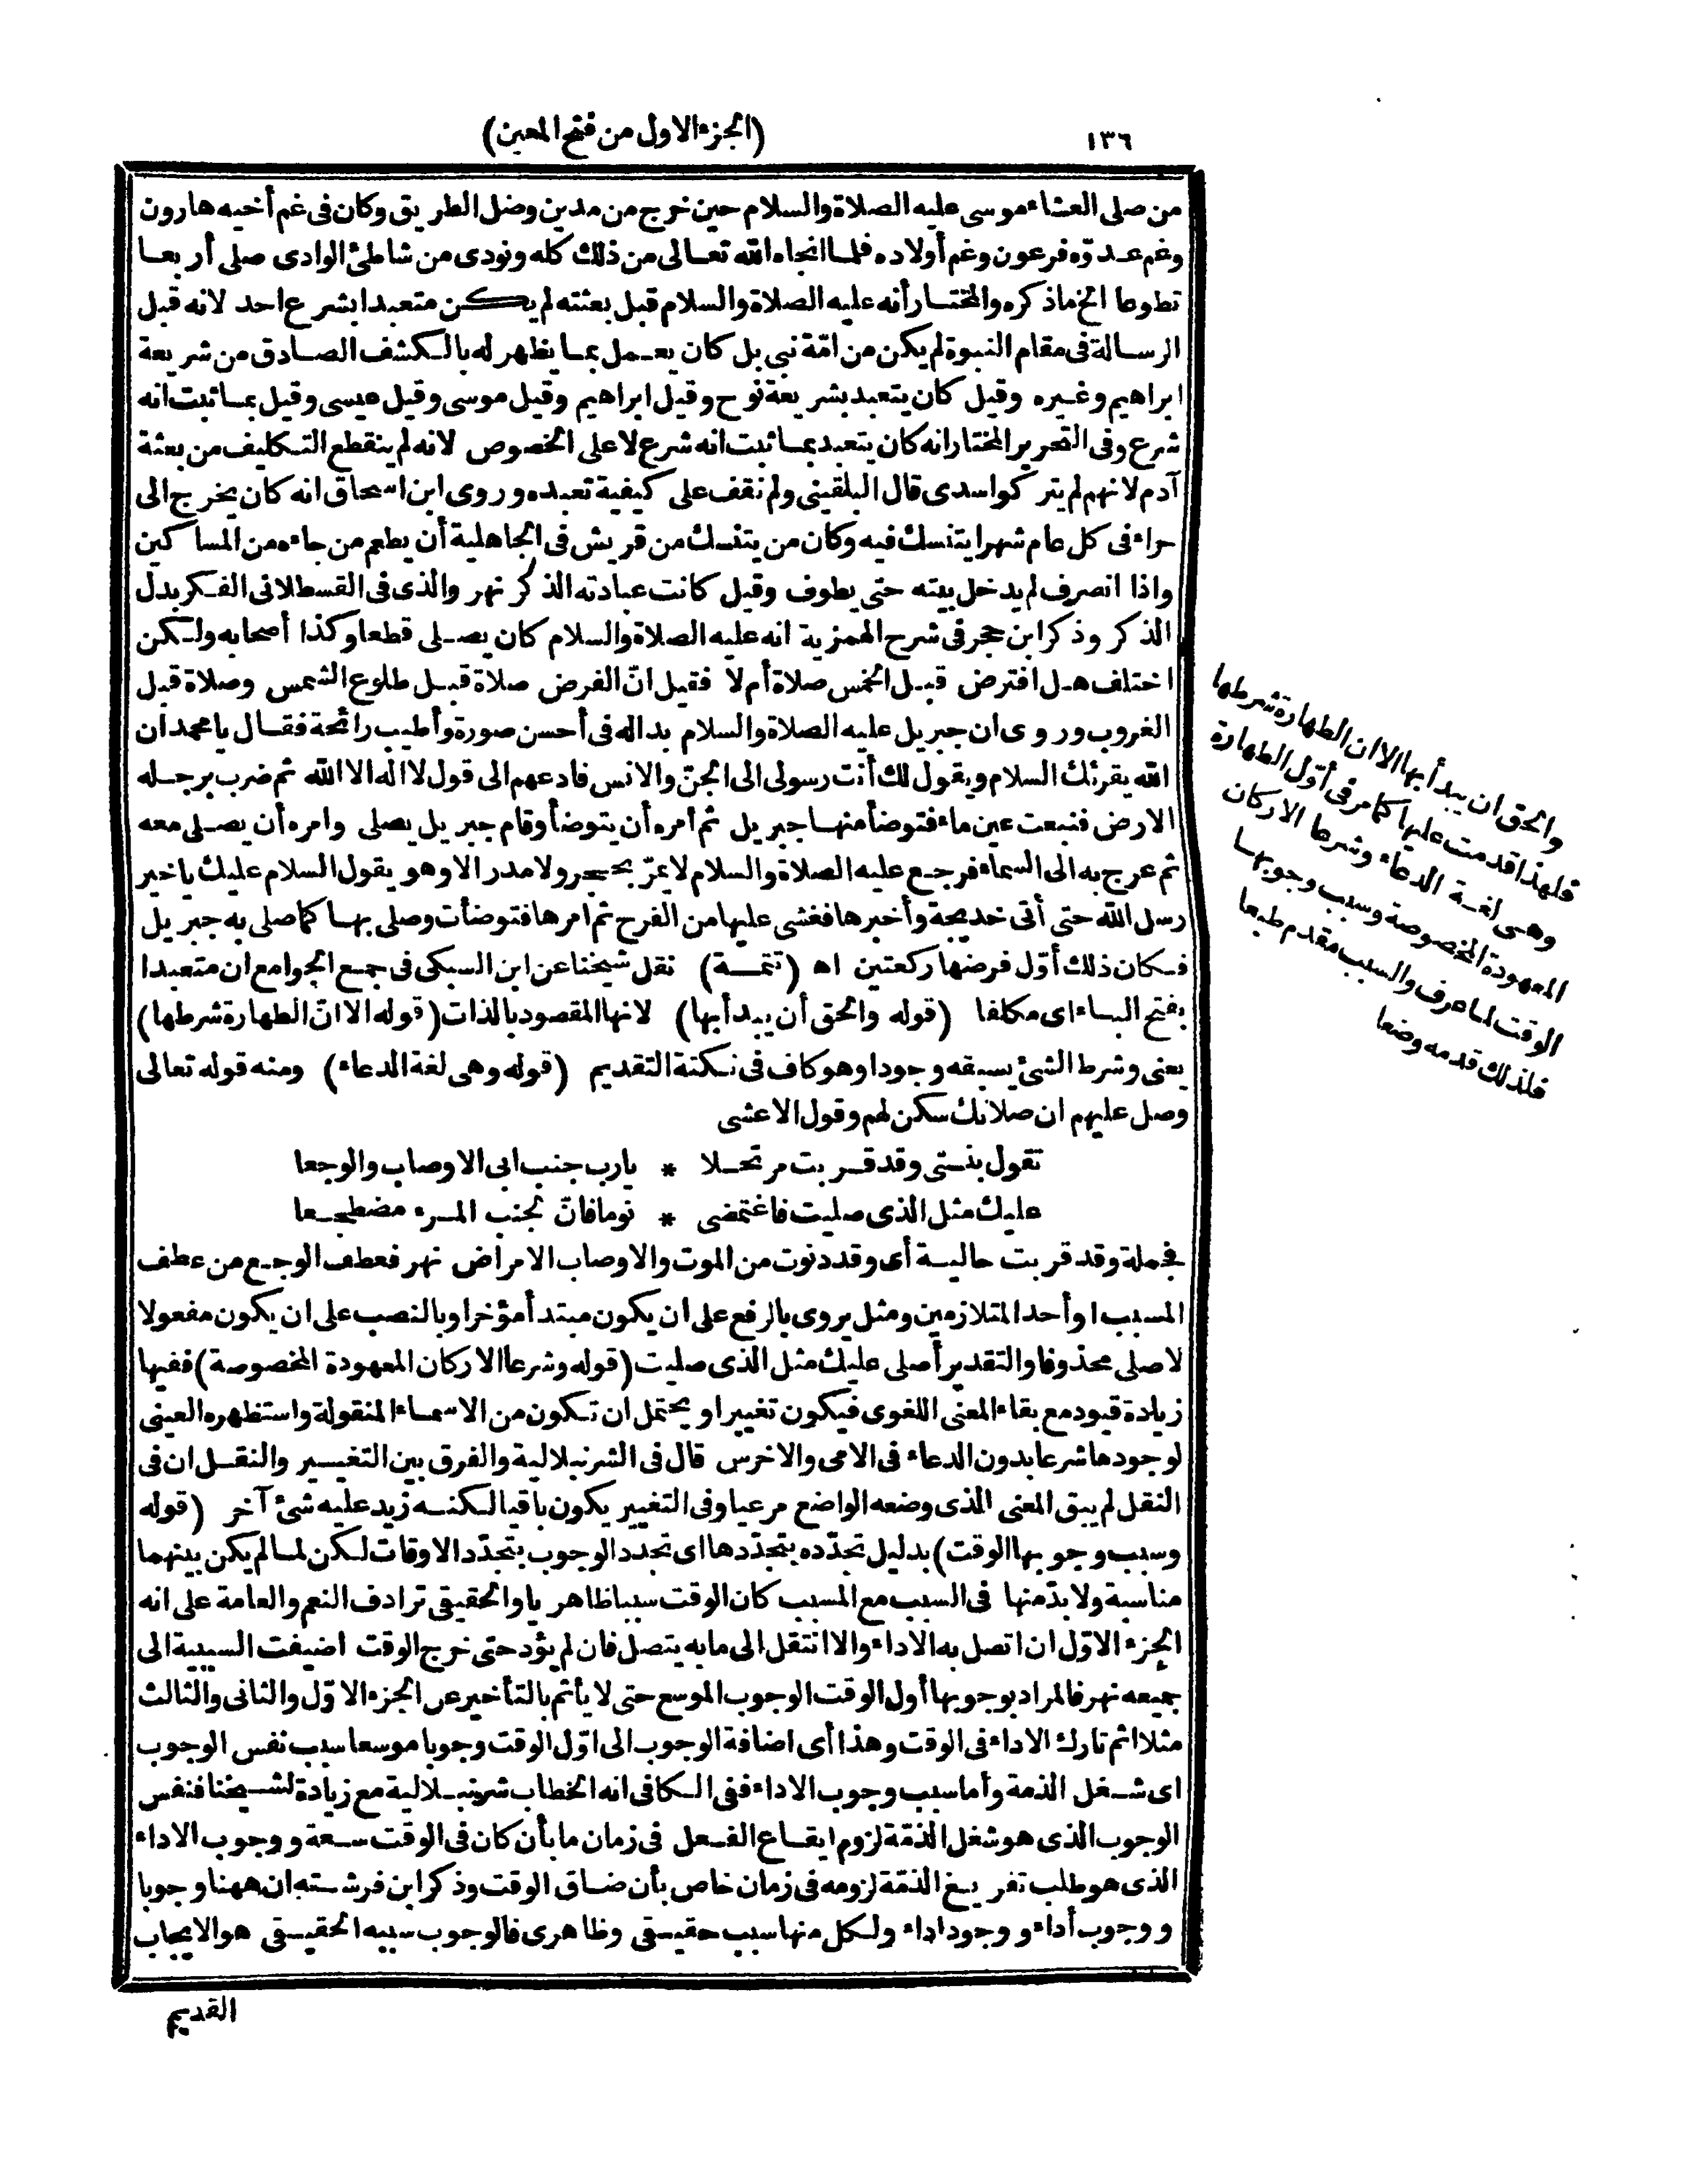 ١٣٦
(الجزء الاول من فتح المعين)
من صلى العشاء موسى عليه الصلاة والسلام حين خرج من مدين وضل الطريق وكان فى غم أخيه هارون
وغم عدوّه فرعون وغم أولاده فلما انجاه الله تعالى من ذلك كله ونودى من شاطئ الوادى صلى أربعا
تطوعا الخ ماذكره والمختار أنه عليه الصلاة والسلام قبل بعثته لم يكن متعبدا بشرع احد لانه قبل
الرسالة فى مقام النبوة لم يكن من امّة نبى بل كان يعمل بما يظهر له بالكشف الصادق من شريعة
ابراهيم وغيره وقيل كان يتعبد بشريعة نوح وقيل ابراهيم وقيل موسى وقيل عيسى وقيل بما ثبت انه
شرع وفى التحرير المختار انه كان يتعبد بما ثبت انه شرع لا على الخصوص لانه لم ينقطع التكليف من بعثة
آدم لانهم لم يتركوا سدى قال البلقينى ولم نقف على كيفية تعبده وروى ابن اسحاق انه كان يخرج الى
حراء فى كل عام شهرا يتنسك فيه وكان من يتنسك من قريش فى الجاهلية أن يطعم من جاءه من المساكين
واذا انصرف لم يدخل بيته حتى يطوف وقيل كانت عبادته الذكر نهر والذى فى القسطلانى الفكر بدل
الذكر وذكر ابن حجر فى شرح الهمزية انه عليه الصلاة والسلام كان يصلى قطعا وكذا أصحابه ولكن
اختلف هل افترض قبل الخمس صلاة أم لا فقيل انّ الفرض صلاة قبل طلوع الشمس وصلاة قبل
الغروب وروى ان جبريل عليه الصلاة والسلام بدا له فى أحسن صورة وأطيب رائحة فقال يا محمد ان
الله يقرئك السلام ويقول لك أنت رسولى الى الجنّ والانس فادعهم الى قول لا اله الا الله ثم ضرب برجله
الارض فنبعت عين ماء فتوضأ منها جبريل ثم أمره أن يتوضأ وقام جبريل يصلى وامره أن يصلى معه
ثم عرج به الى السماء فرجع عليه الصلاة والسلام لا يمرّ بحجر ولا مدر الا وهو يقول السلام عليك يا خير
رسل الله حتى أتى خديجة وأخبرها فغشى عليها من الفرح ثم امرها فتوضأت وصلى بها كما صلى به جبريل
فكان ذلك أوّل فرضها ركعتين اه (تتمة) نقل شيخنا عن ابن السبكى فى جمع الجوامع ان متعبدا
بفتح الباء اى مكلفا (قوله والحق أن يبدأ بها) لانها المقصود بالذات (قوله الا انّ الطهارة شرطها)
يعنى وشرط الشئ يسبقه وجودا وهو كاف فى نكتة التقديم (قوله وهى لغة الدعاء) ومنه قوله تعالى
وصل عليهم ان صلاتك سكن لهم وقول الاعشى
تقول بنتى وقد قربت مرتحلا * يارب جنب ابى الاوصاب والوجعا
عليك مثل الذى صليت فاغتمضى * نوما فانّ لجنب المرء مضطجعا
فجملة وقد قربت حالية أى وقد دنوت من الموت والاوصاب الامراض نهر فعطف الوجع من عطف
المسبب او أحد المتلازمين ومثل يروى بالرفع على ان يكون مبتدأ مؤخرا وبالنصب على ان يكون مفعولا
لاصلى محذوفا والتقدير أصلى عليك مثل الذى صليت (قوله وشرعا الاركان المعهودة المخصوصة) ففيها
زيادة قيود مع بقاء المعنى اللغوى فيكون تغييرا ويحتمل ان تكون من الاسماء المنقولة واستظهره العينى
لوجودها شرعا بدون الدعاء فى الامى والاخرس قال فى الشرنبلالية والفرق بين التغيير والنقل ان فى
النقل لم يبق المعنى الذى وضعه الواضع مرعيا وفى التغيير يكون باقيا لكنه زيد عليه شئ آخر (قوله
وسبب وجوبها الوقت) بدليل تجدّده بتجدّدها اى تجدد الوجوب بتجدّد الاوقات لكن لما لم يكن بينهما
مناسبة ولا بدّ منها فى السبب مع المسبب كان الوقت سببا ظاهريا والحقيقى ترادف النعم والعامة على انه
الجزء الاوّل ان اتصل به الاداء والا انتقل الى ما به يتصل فان لم يؤد حتى خرج الوقت اضيفت السببية الى
جميعه نهر فالمراد بوجوبها أول الوقت الوجوب الموسع حتى لا يأثم بالتأخير عن الجزء الاوّل والثانى والثالث
مثلا اثم تارك الاداء فى الوقت وهذا أى اضافة الوجوب الى اوّل الوقت وجوبا موسعا سبب نفس الوجوب
اى شغل الذمة وأما سبب وجوب الاداء ففى الكافى انه الخطاب شرنبلالية مع زيادة لشيخنا فنفس
الوجوب الذى هو شغل الذمّة لزوم ايقاع الفعل فى زمان ما بأن كان فى الوقت سعة ووجوب الاداء
الذى هو طلب تفريغ الذمّة لزومه فى زمان خاص بأن ضاق الوقت وذكر ابن فرشته ان ههنا وجوبا
ووجوب أداء ووجود اداء ولكل منها سبب حقيقى وظاهرى فالوجوب سببه الحقيقى هو الايجاب
القديم
والحق ان يبدأ بها الا ان الطهارة شرطها
فلهذا قدمت عليها كما مر فى أوّل الطهارة
وهى لغة الدعاء وشرعا الاركان
المعهودة المخصوصة وسبب وجوبها
الوقت لما عرف والسبب مقدم طبعا
فلذلك قدمه وضعا